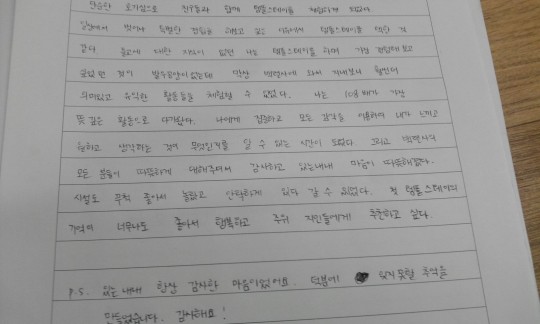 단순한 호기심으로 친구들과 함께 템플스테이를 체험하게 되었다.
일상에서 벗어나 특별한 경험을 해보고 싶은 이유에서 템플스테이를 택한 것
같다. 불교에 대한 지식이 없던 나는 템플스테이를 하며 가장 걱정해보고
궁금했던 것이 발우공양이었는데 막상 백련사에 와서 지내보니 훨씬 더
의미있고 유익한 활동들을 체험할 수 있었다. 나는 108배가 가장
뜻 깊은 활동으로 다가왔다. 나에게 집중하고 모든 감각을 이용하여 내가 느끼고
원하고 생각하는 것이 무엇인가를 알 수 있는 시간이 되었다. 그리고 백련사의
모든 분들이 따뜻하게 대해주셔서 감사하고 있는내내 마음이 따뜻해졌다.
시설도 무척 좋아서 놀랐고 안락하게 있다 갈 수 있었다. 첫 템플스테이의
기억이 너무나도 좋아서 행복하고 주위 지인들에게 추천하고 싶다.
P.S. 있는내내 항상 감사한 마음이었어요. 덕분에 잊지못할 추억을
만들었습니다. 감사해요!